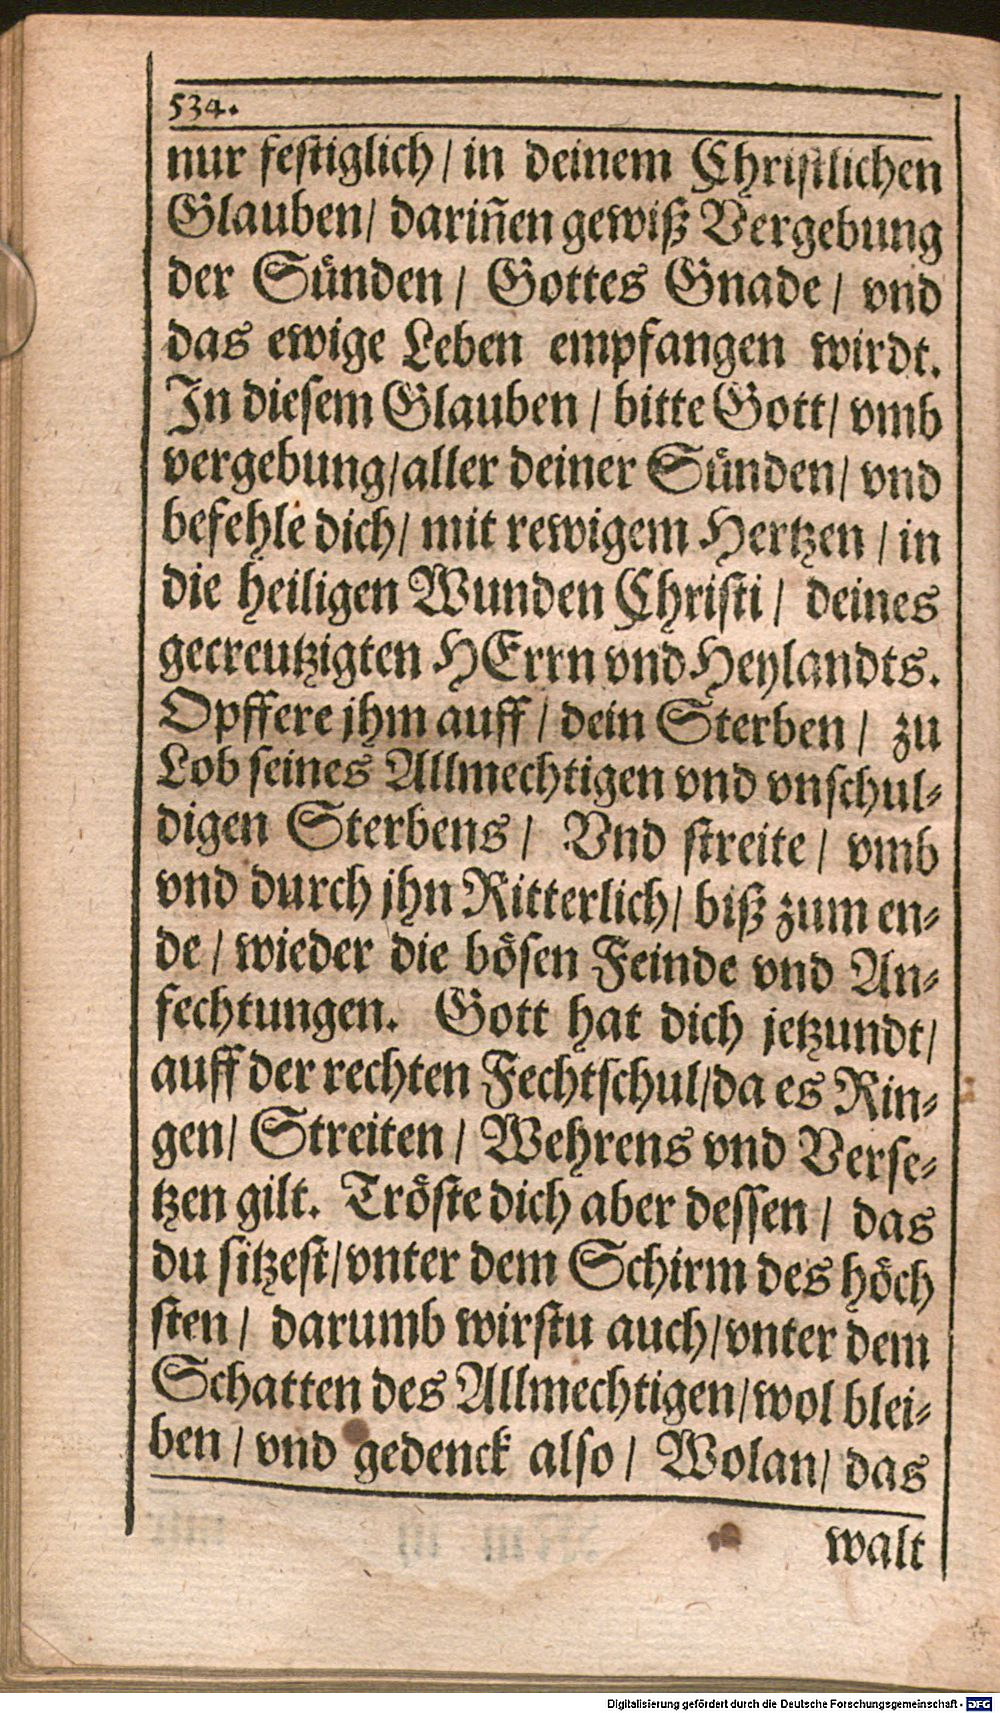 534.
nur festiglich/ in deinem Christlichen
Glauben/ dariñen gewiß Vergebung
der Sünden/ Gottes Gnade/ vnd
das ewige Leben empfangen wirdt.
In diesem Glauben/ bitte Gott/ vmb
vergebung/ aller deiner Sünden/ vnd
befehle dich/ mit rewigem Hertzen/ in
die heiligen Wunden Christi/ deines
gecreutzigten HErrn vnd Heylandts.
Opffere jhm auff/ dein Sterben/ zu
Lob seines Allmechtigen vnd vnschul-
digen Sterbens/ Vnd streite/ vmb
vnd durch jhn Ritterlich/ biß zum en-
de/ wieder die bösen Feinde vnd An-
fechtungen. Gott hat dich jetzundt/
auff der rechten Fechtschul/ da es Rin-
gen/ Streiten/ Wehrens vnd Verse-
tzen gilt. Tröste dich aber dessen/ das
du sitzest/ vnter dem Schirm des höch
sten/ darumb wirstu auch/ vnter dem
Schatten des Allmechtigen/ wol blei-
ben/ vnd gedenck also/ Wolan/ das
walt
Digitalisierung gefördert durch die Deutsche Forschungsgemeinschaft - DFG